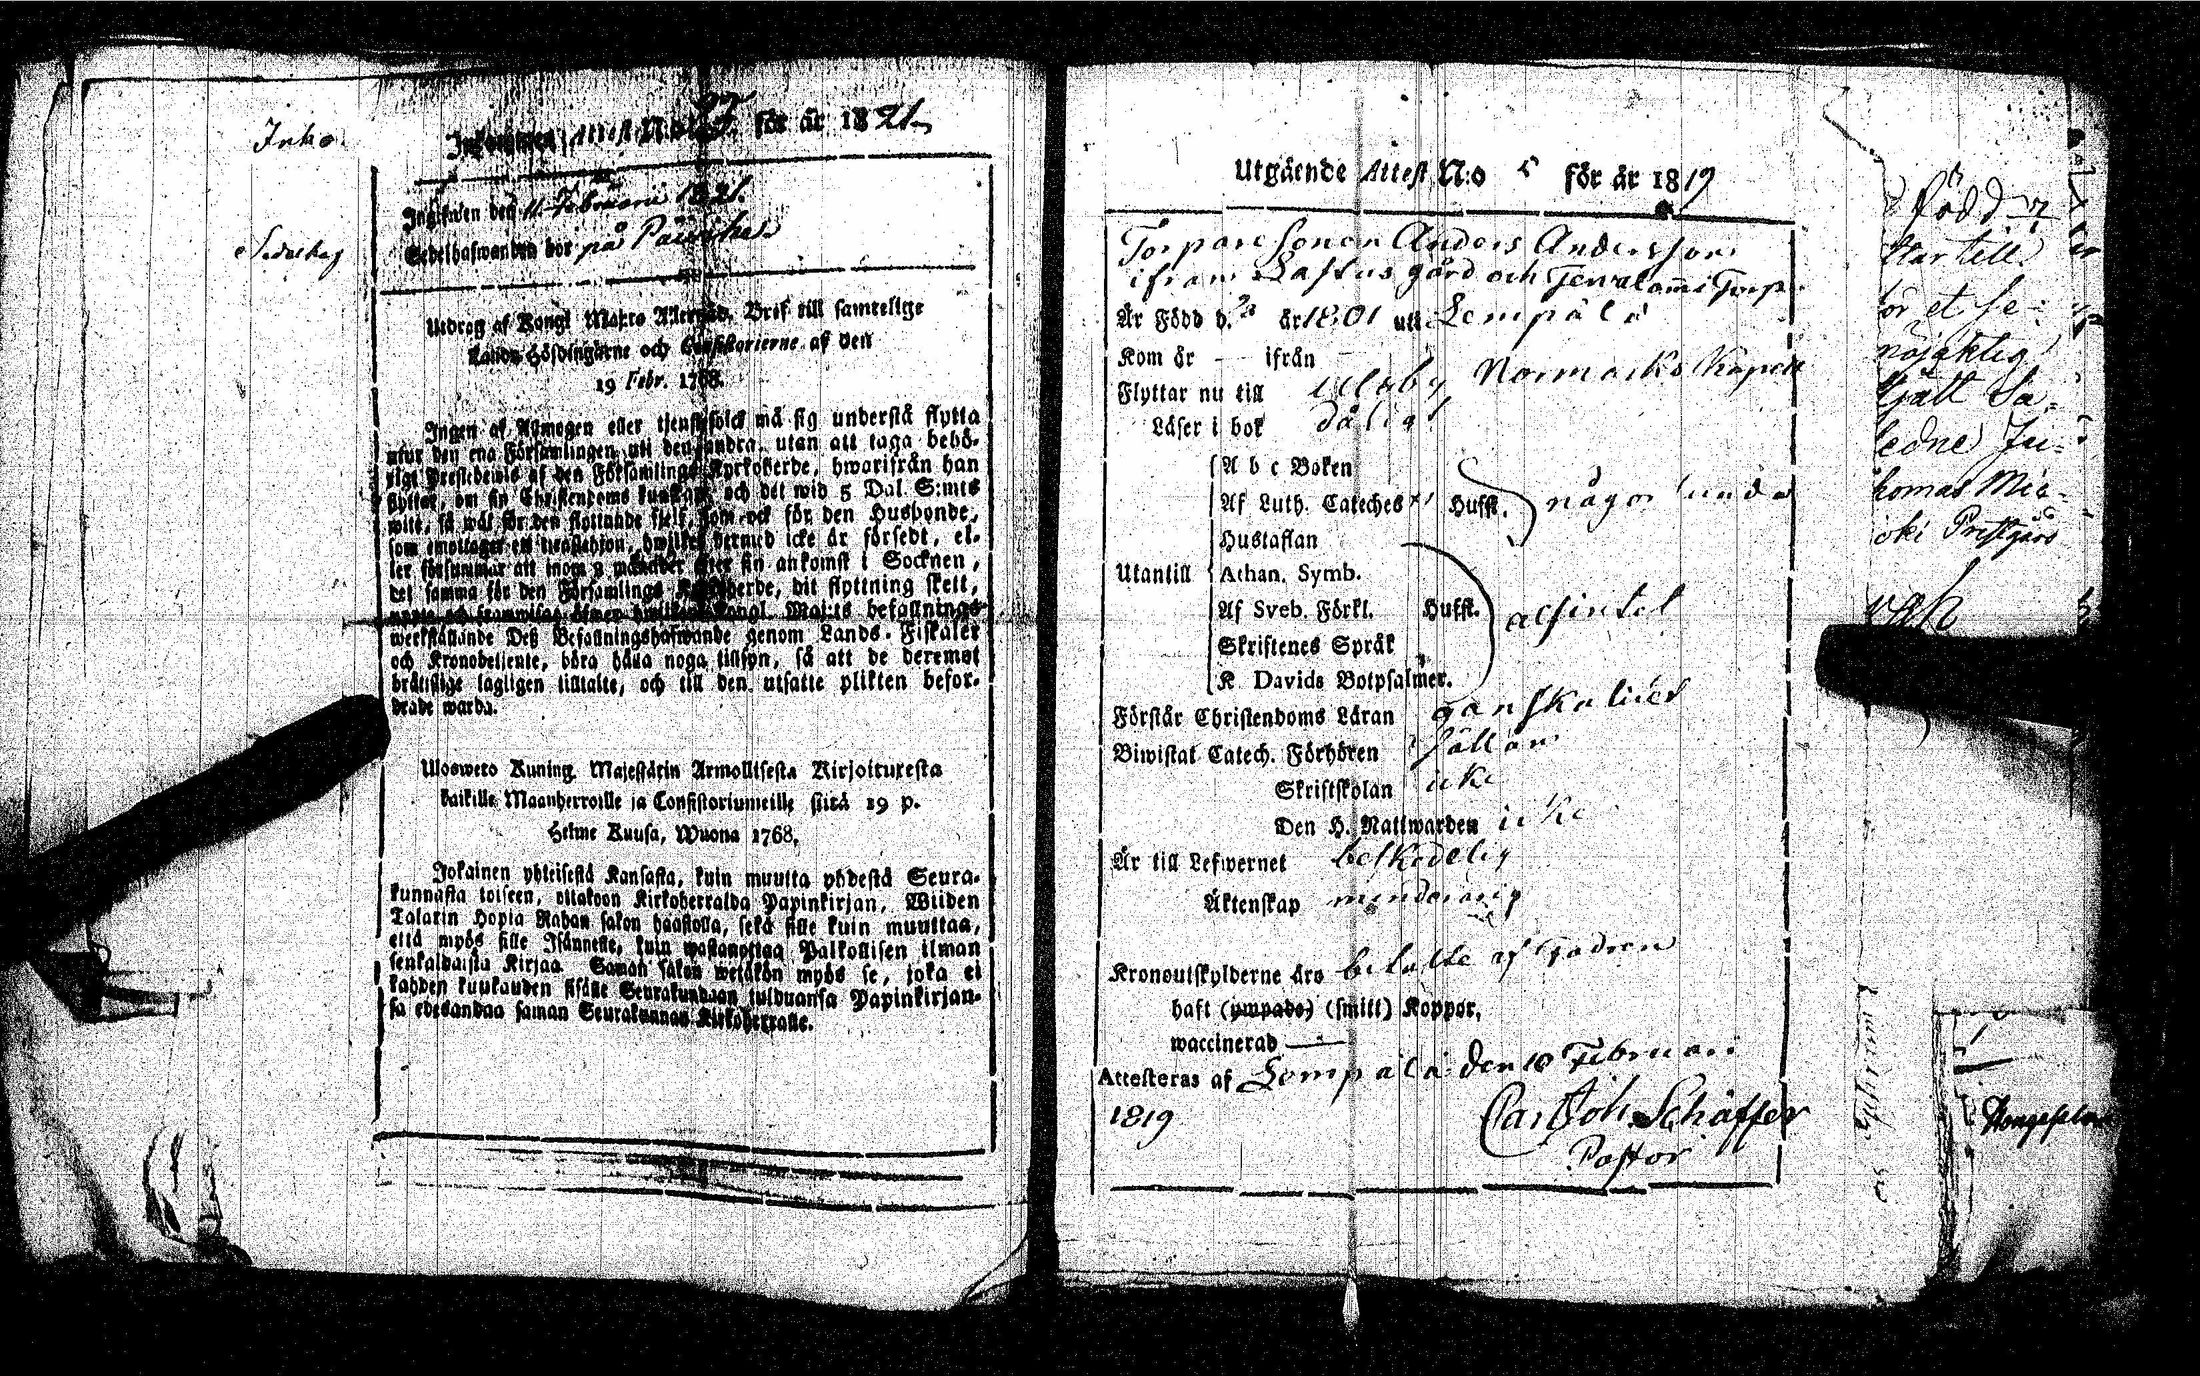 Inko
Inkommen Attest N:o 27. för år 1821.
Ingifwen den 11 Februarii 1821.
Sedelhaf
Sedelhafwanden bor på
Utdrag af Kongl Maj:ts Allernåd. Bref till samtelige
Lands Höfdingarne och Consistorierne af den
19 Febr. 1768.
Ingen af Allmogen eller tjenstefolck må sig understå flytta
utur den ena Församlingen uti den andra, utan att taga behö-
rigt Prestebewis af den Församlings Kyrkoherde, hwarifrån han
flyttar, om sin Christendoms kunskap, och det wid 5 Dal. S:mts
wite, så wäl för den flyttande sjelf, som ock för den Husbonde,
som emottager ett tienstehjon, hwilket dermed icke är försedt, el-
ler försummar att inom 2 månader efter sin ankomst i Socknen,
det samma för den Församlings Kyrkoherde, dit flyttning skett,
uppte och framwisa; öfwer hwilken Kongl. Maj:ts befallnings
werkställande Deß Befallningshafwande genom Lands-Fiskaler
och Kronobetjente, böra hålla noga tillsyn, så att de deremot
bråtslige lagligen tilltalte, och till den utsatte plikten befor-
drade warda.
Ulosweto Kuning. Majestätin Armollisesta Kirjoituxesta
kaikille Maanherroille ja Consistoriumeille siitä 19 p.
Helme Kuusa, Wuona 1768.
Jokainen yhteisestä Kansasta, kuin muutta yhdestä Seura-
kunnasta toiseen, ottakoon Kirkoherralda Papinkirjan, Wiiden
Talarin Hopia Rahan sakon haastolla, sekä sille kuin muuttaa,
että myös sille Isännelle, kuin wastanottaa Palkollisen ilman
senkaldaista Kirjaa. Saman sakon wetäkön myös se, joka ei
kahden kuukauden sisälle Seurakundaan tulduansa Papinkirjan-
sa edesandaa saman Seurakunnan Kirkoherralle.
Utgående Attest N:o 5 för år 1819
Torpare sonen Anders Andersson
ifrån Lastus gård och Torp
År Född d. år 1801 uti Lempälä
Kom år — ifrån —
Flyttar nu till Ulfsby Normarks Kapell
Läser i bok dåligt
Utantill
A b c Boken
Af Luth. Cateches Hufst. någorlunda
Hustaflan
Athan. Symb.
Af Sveb. Förkl. Hufst. alsintet
Skriftenes Språk
K Davids Botpsalmer.
Förstår Christendoms Läran ganska litet
Biwistat Catech. Förhören sällan
Skriftskolan icke
Den H. Nattwarden icke
Är till Lefwernet beskedelig
Äktenskap minderårig
Kronoutskylderne äro betalte af Fadren
haft (ympade) (smitt) Koppor,
waccinerad —
Attesteras af Lempälä den 18 Februari
1819
Carl Joh. Schäffer
Pastor
född
ttar till
ör et
nöjaktig
homas
oki Prestgård